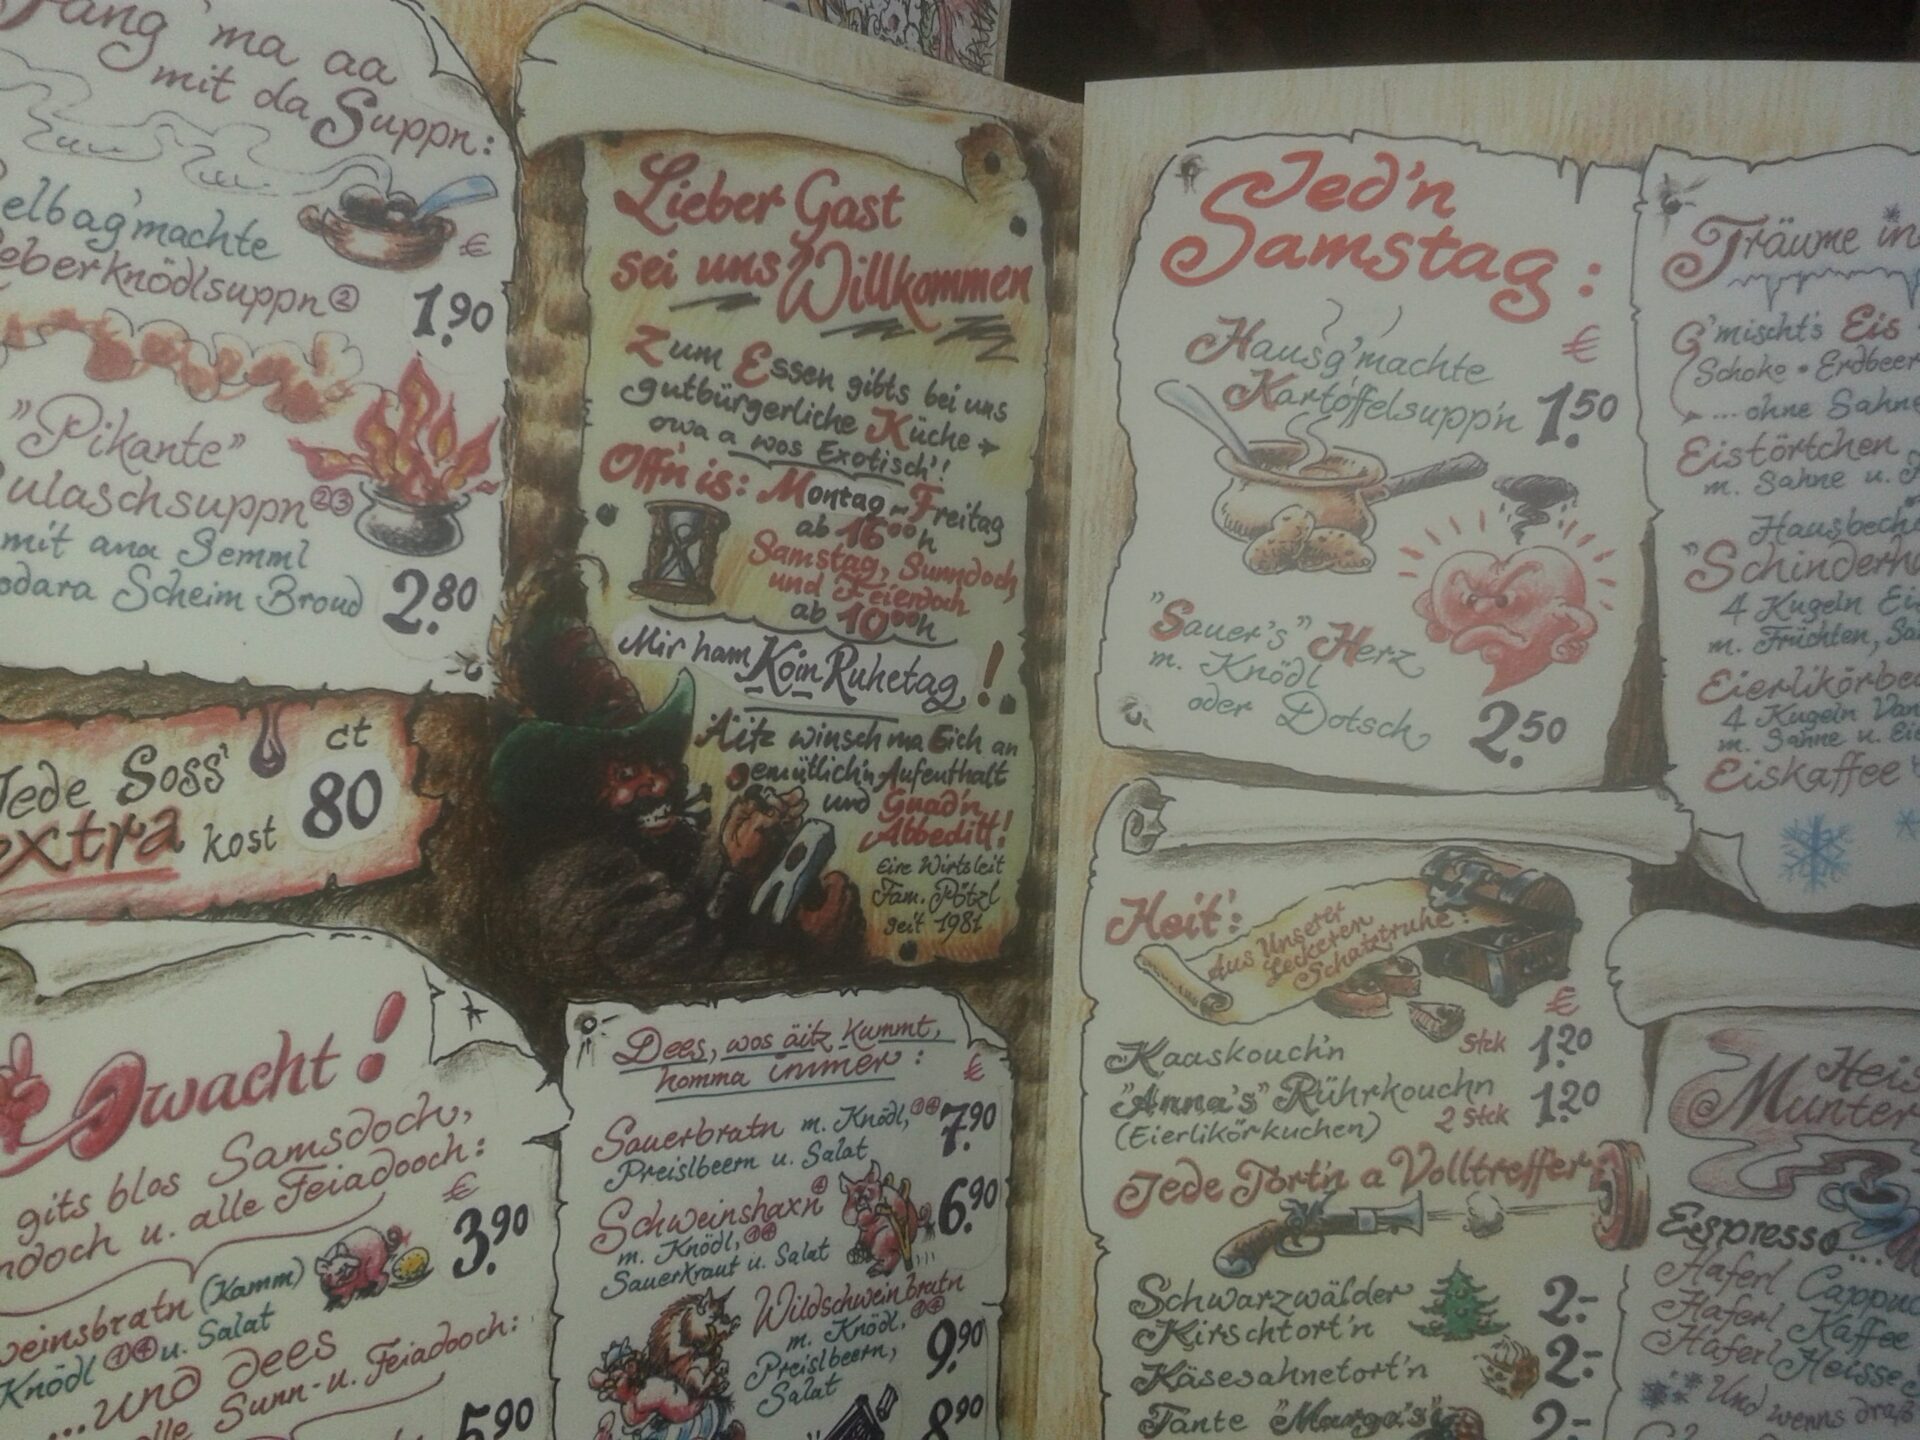 Fang 'ma aa
mit da Suppn:
Selbag'machte
Leberknödlsuppn②
€
1.90
"Pikante"
Gulaschsuppn②③
mit ana Semml
odara Scheim Broud
2.80
Jede Soss'
extra kost
ct
80
Owacht!
gits blos Samsdoch,
u. alle Feiadooch:
€
(Kamm)
3.90
Knödl ①④ u. Salat
...und dees
alle Sunn- u. Feiadooch:
5.90
Lieber Gast
sei uns Willkommen
Zum Essen gibts bei uns
gutbürgerliche Küche
owa a wos Exotisch'!
Off'n is: Montag - Freitag
ab 16⁰⁰h
Samstag, Sunndoch,
und Feierdoch
ab 10⁰⁰h
Mir ham Koin Ruhetag!
Äitz winsch ma Eich an
gemütlich'n Aufenthalt
und Guad'n
Abbeditt!
Eire Wirtsleit
Fam. Pötzl
seit 1981
Dees, wos äitz kummt,
homma immer:
€
Sauerbratn m. Knödl,①④
Preislbeern u. Salat
7.90
Schweinshaxn④
m. Knödl,①④
Sauerkraut u. Salat
6.90
Wildschweinbratn
m. Knödl,①④
Preislbeern,
Salat
9.90
8.90
Jed'n
Samstag:
€
Hausg'machte
Kartoffelsupp'n
1.50
"Sauer's" Herz
m. Knödl
oder Dotsch
2.50
Heit':
Aus Unserer
Leckeren
Schatztruhe:
€
Kaaskouch'n Stck 1.20
"Anna's" Rührkouchn
(Eierlikörkuchen) 2 Stck 1.20
Jede Tort'n a Volltreffer
Schwarzwälder
Kirschtort'n 2.-
Käsesahnetort'n 2.-
Tante "Marga's" 2.-
Träume in
G'mischts Eis
Schoko • Erdbeer
...ohne Sahne
Eistörtchen
m. Sahne u.
4 Kugeln
m. Früchten,
4 Kugeln
m. Sahne u.
Eiskaffee
Espresso...
Haferl
Haferl Kaffee
Haferl Heisse
Und wenns